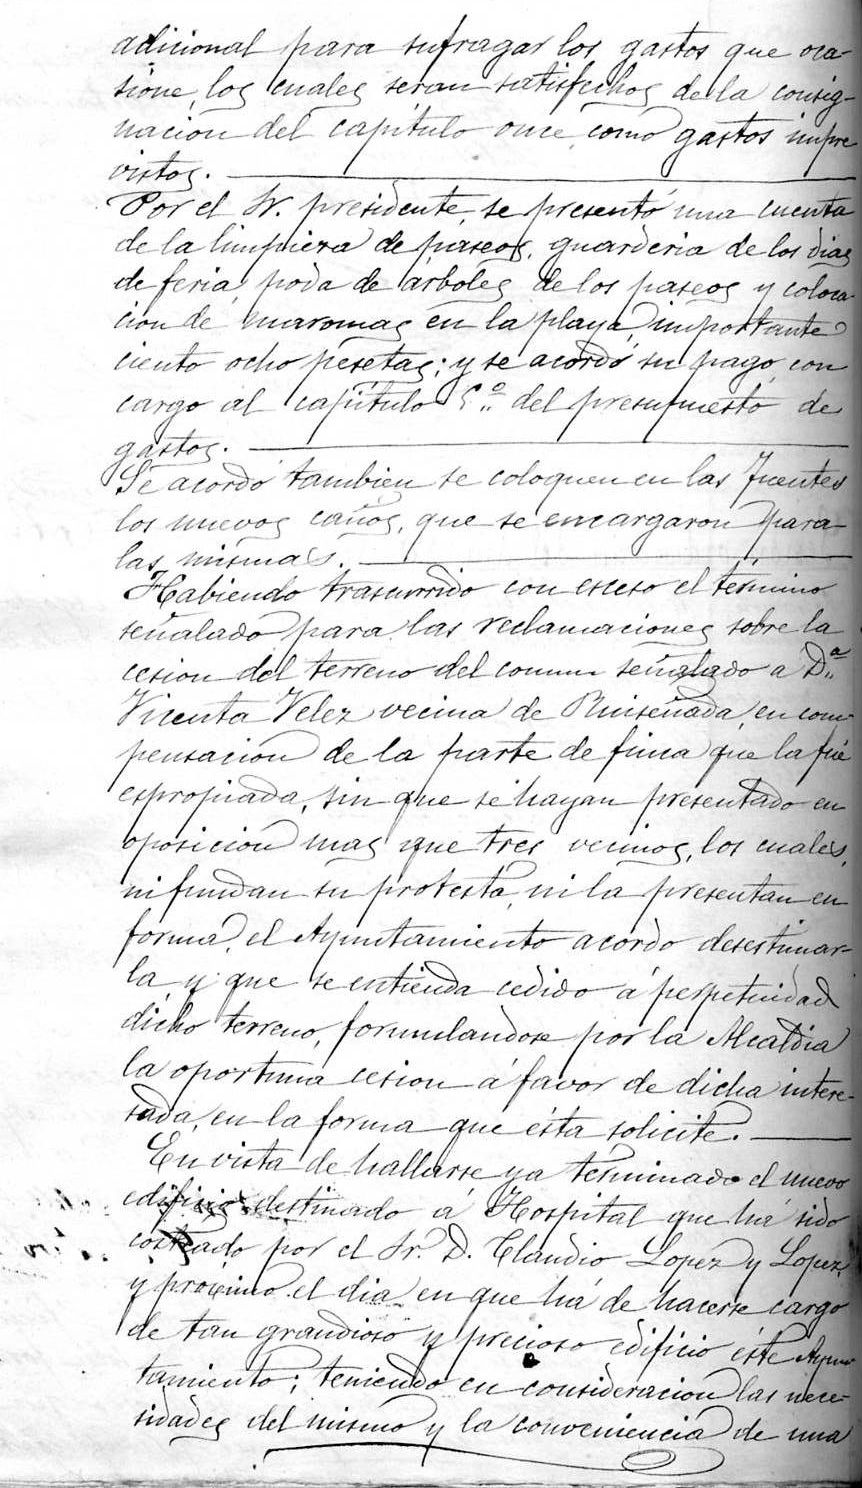 adicional para sufragar los gastos que oca-
sione, los cuales seran satisfechos de la consig-
nacion del capítulo once, como gastos impre
vistos.
Por el Sr. presidente, se presentó una cuenta
de la limpieza de paseos, guarderia de los dias
de feria, poda de árboles de los paseos y coloca-
cion de maromas en la playa, importante
ciento ocho pesetas; y se acordó su pago, con
cargo al capítulo 5º del presupuesto de
gastos.
Se acordó tambien se coloquen en las fuentes
los nuevos caños, que se encargaron para
las mismas.
Habiendo trascurrido con esceso el término
señalado para las reclamaciones sobre la
cesion del terreno del comun señalado a Dª
Vicenta Velez vecina de Ruiseñada, en com-
pensacion de la parte de finca que la fué
espropiada, sin que se hayan presentado en
oposicion mas que tres vecinos, los cuales,
ni fundan su protesta, ni la presentan en
forma, el Ayuntamiento acordo desestimar-
la, y que se entienda cedido á perpetuidad
dicho terreno, formulandose por la Alcaldia
la oportuna cesion á favor de dicha intere-
sada, en la forma que ésta solicite.
En vista de hallarse ya terminado el nuevo
edificio destinado á Hospital que há sido
costeado por el Sr. D. Claudio Lopez y Lopez,
y próximo el dia en que há de hacerse cargo
de tan grandioso y precioso edificio éste Ayun-
tamiento; teniendo en consideracion las nece-
sidades del mismo y la conveniencia de una